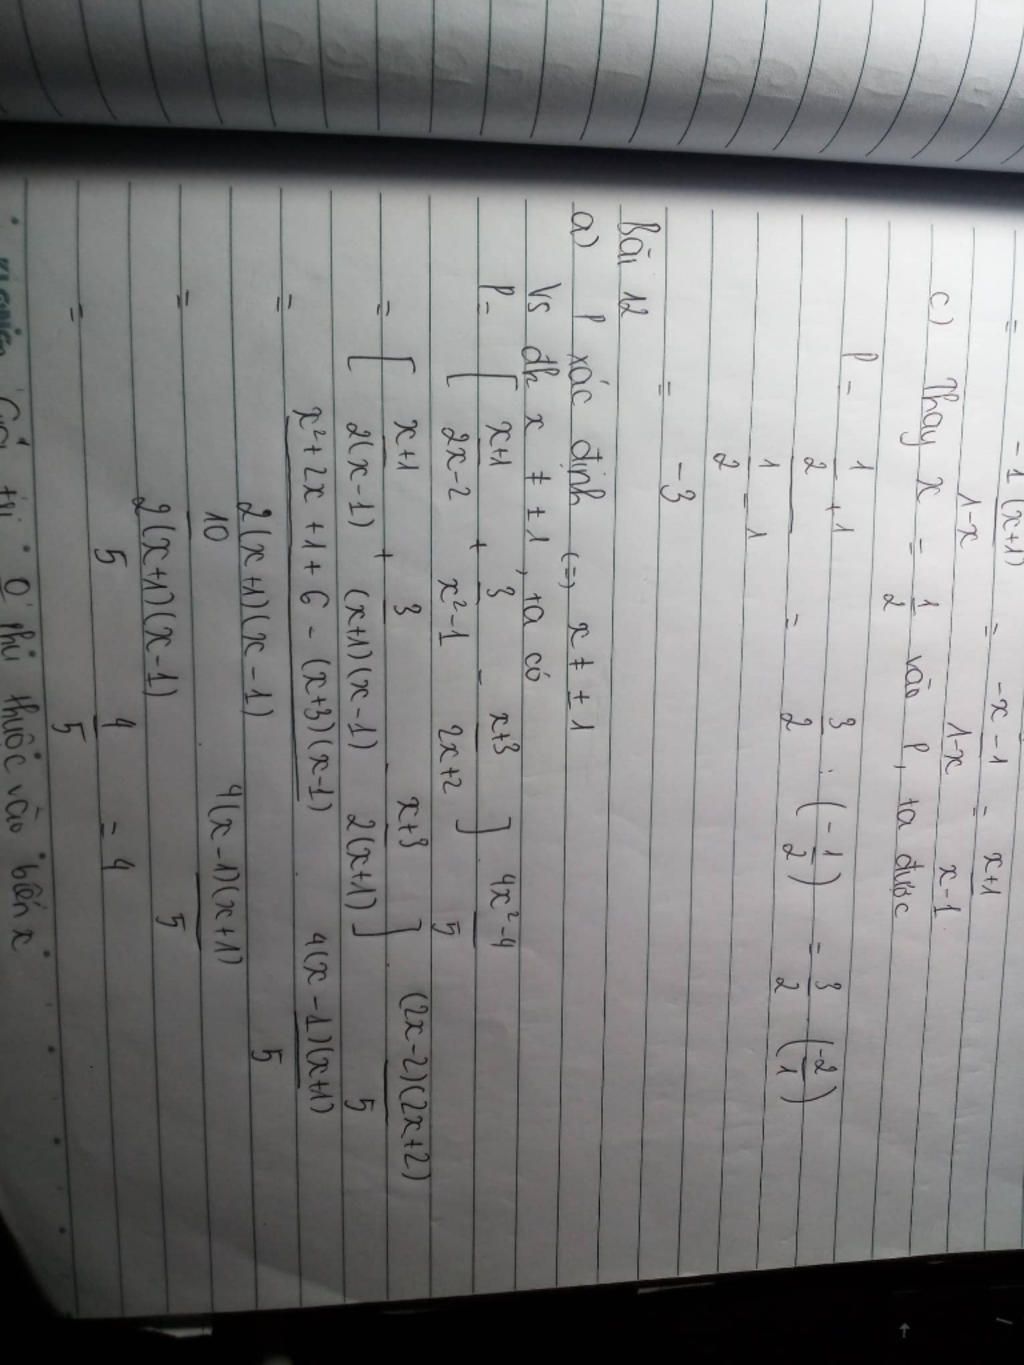 = -1(x+1)/1-x = -x-1/1-x = x+1/x-1
c) Thay x = 1/2 vào P, ta được
P = (1/2 + 1)/(1/2 - 1) = 3/2 : (-1/2) = 3/2 (-2/1)
= -3
Bài 12
a) P xác định <=> x ≠ ±1
Vs đk x ≠ ±1, ta có
P = [x+1/2x-2 + 3/x²-1 - x+3/2x+2] . 4x²-4/5
= [x+1/2(x-1) + 3/(x+1)(x-1) - x+3/2(x+1)] . (2x-2)(2x+2)/5
= x²+2x+1+6-(x+3)(x-1)/2(x+1)(x-1) 4(x-1)(x+1)/5
= 10/2(x+1)(x-1) 4(x-1)(x+1)/5
= 5 4/5 = 4
Giá trị phụ thuộc vào biến x